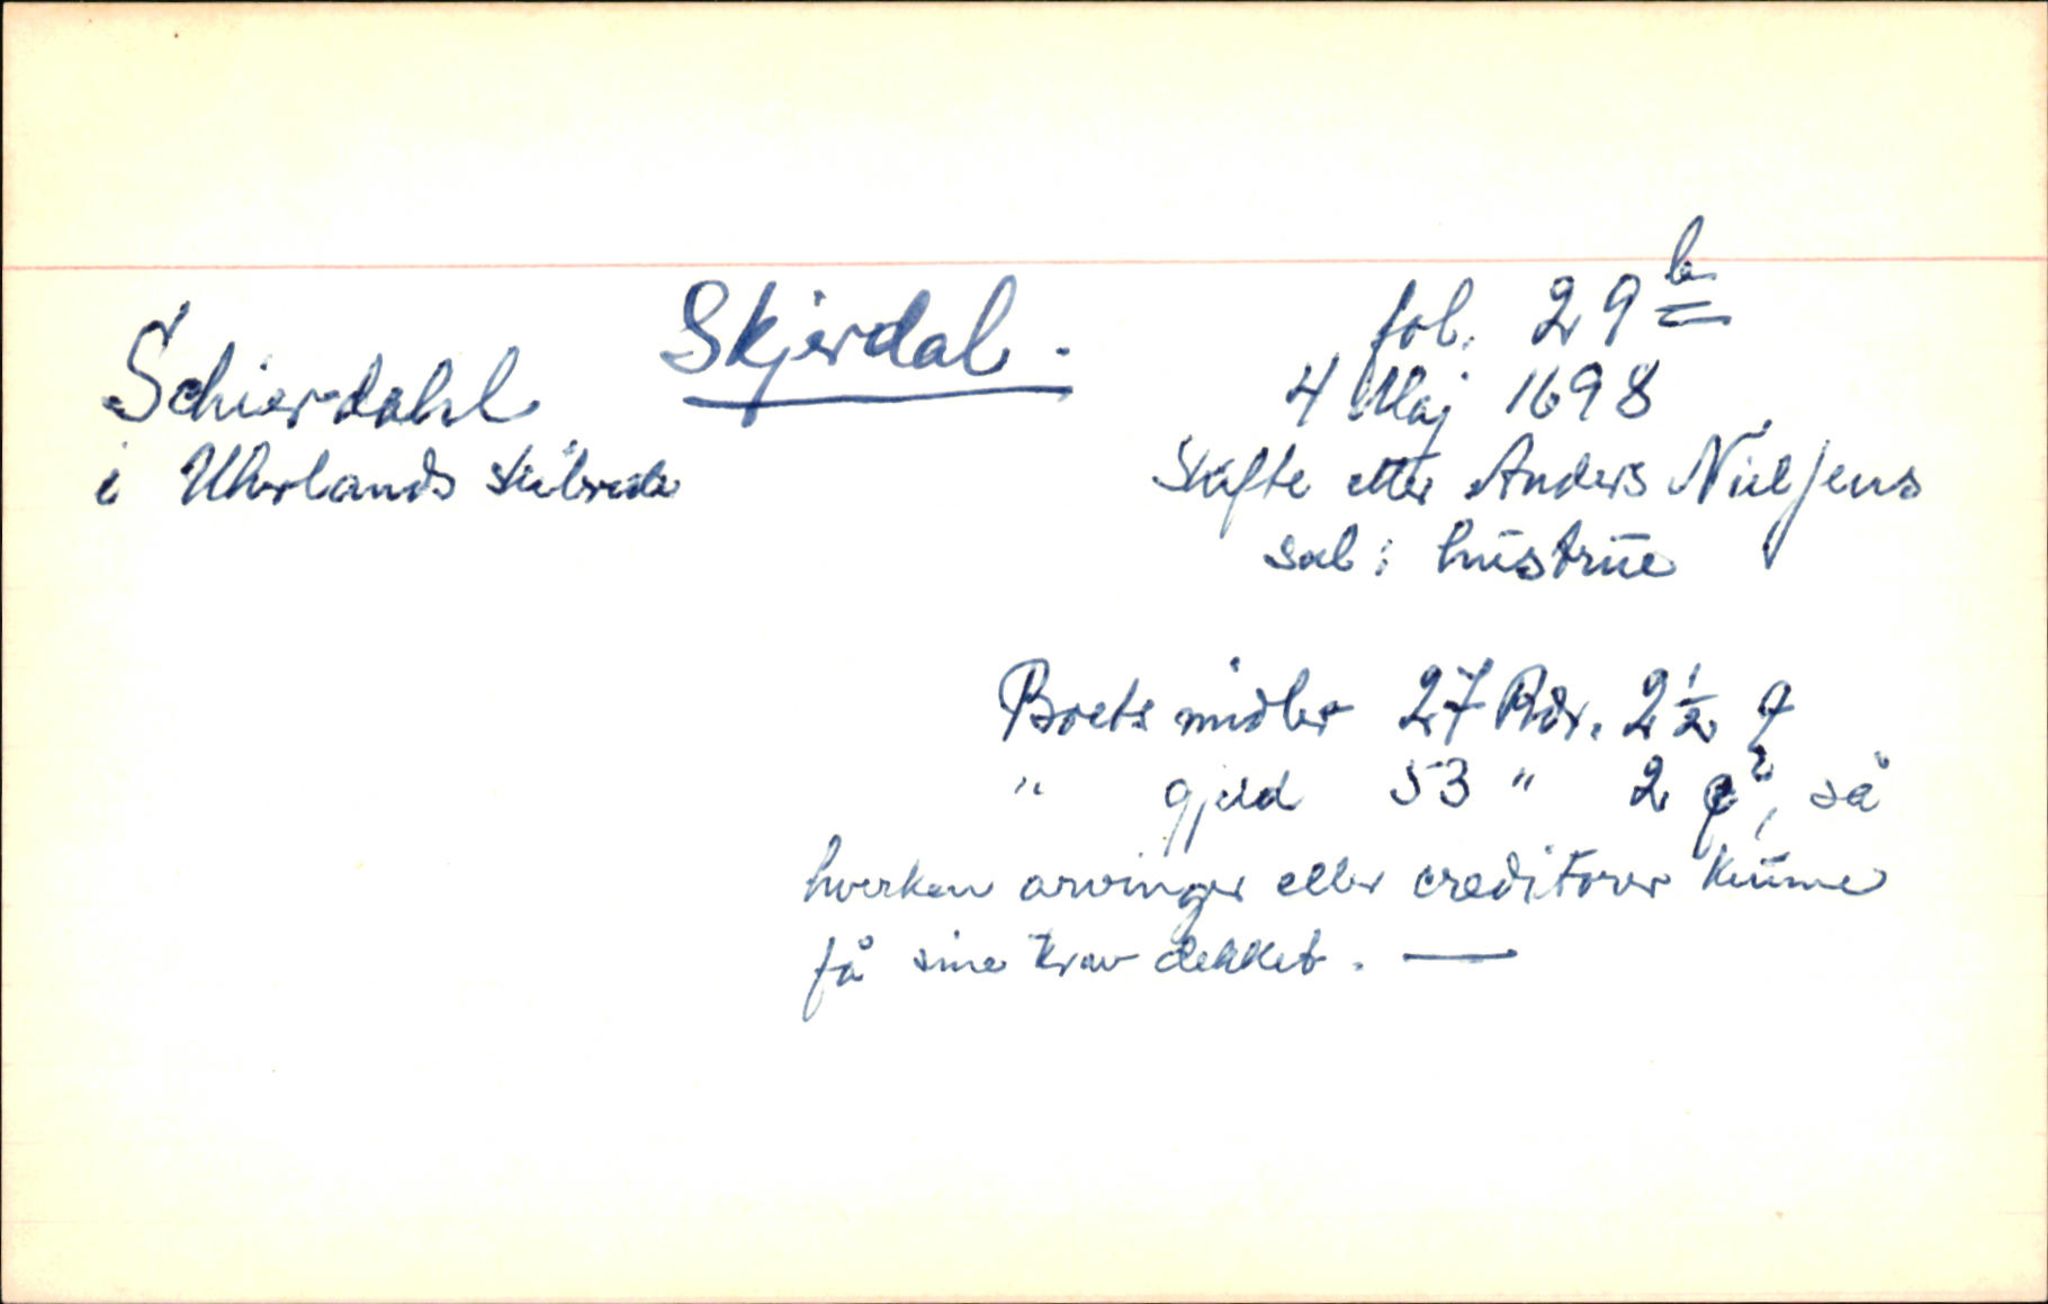 Skjerdal.
fol. 29 b
Schierdahl
i Uhrlands skibrede
4 Maj 1698
Skifte etter Anders Nielsens
sal: hustrue
Boets midler 27 Rdr. 2 1/2
" gjeld 53 " 2, så
hverken arvinger eller creditorer kunne
få sine krav dekket. —